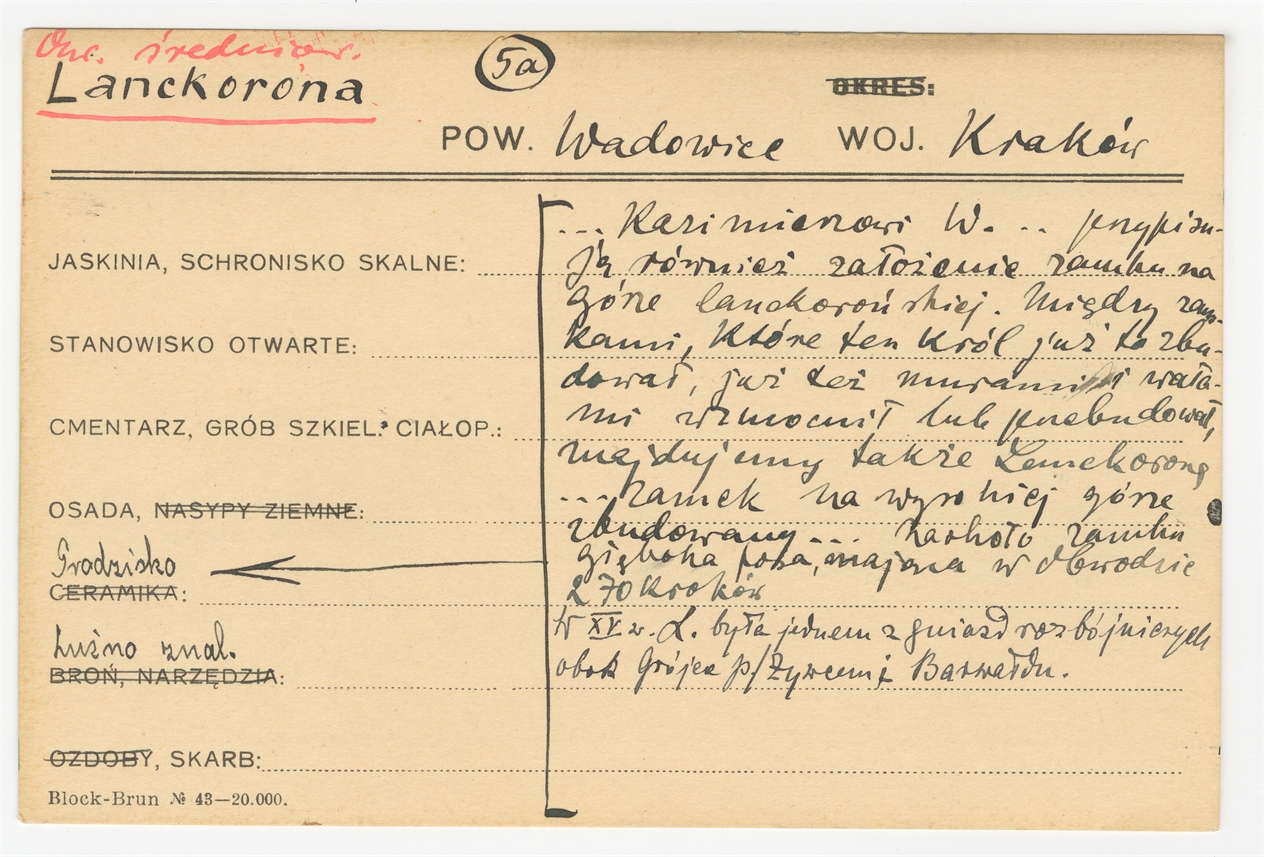 średniow.
Lanckorona
5a
OKRES:
POW. Wadowice WOJ. Kraków
JASKINIA, SCHRONISKO SKALNE:
STANOWISKO OTWARTE:
CMENTARZ, GRÓB SZKIEL. CIAŁOP.:
OSADA, NASYPY ZIEMNE:
Grodzisko
CERAMIKA:
Luźno znal.
BROŃ, NARZĘDZIA:
OZDOBY, SKARB:
Block-Brun № 43—20.000.
... Kazimierzowi W. .. przypisu-
ją również założenie zamku na
górze lanckorońskiej. Między zam-
kami, które ten król już to zbu-
dował, już też murami i wała-
mi wzmocnił lub przebudował,
znajdujemy także Lanckoronę
... zamek na wysokiej górze
zbudowany... naokoło zamku
głęboka fosa, mająca w obwodzie
270 kroków
W XV w. L. była jednem z gniazd rozbójniczych
obok Grójca p/Żywcem i Barwałdu.